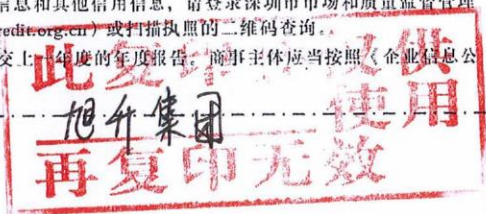 信息和其他信用信息，请登录深圳市市场和质量监督管理
redit.org.cn）或扫描执照的二维码查询。
交上一年度的年度报告。商事主体应当按照《企业信息公
此复印件仅供
旭升集团
使用
再复印无效